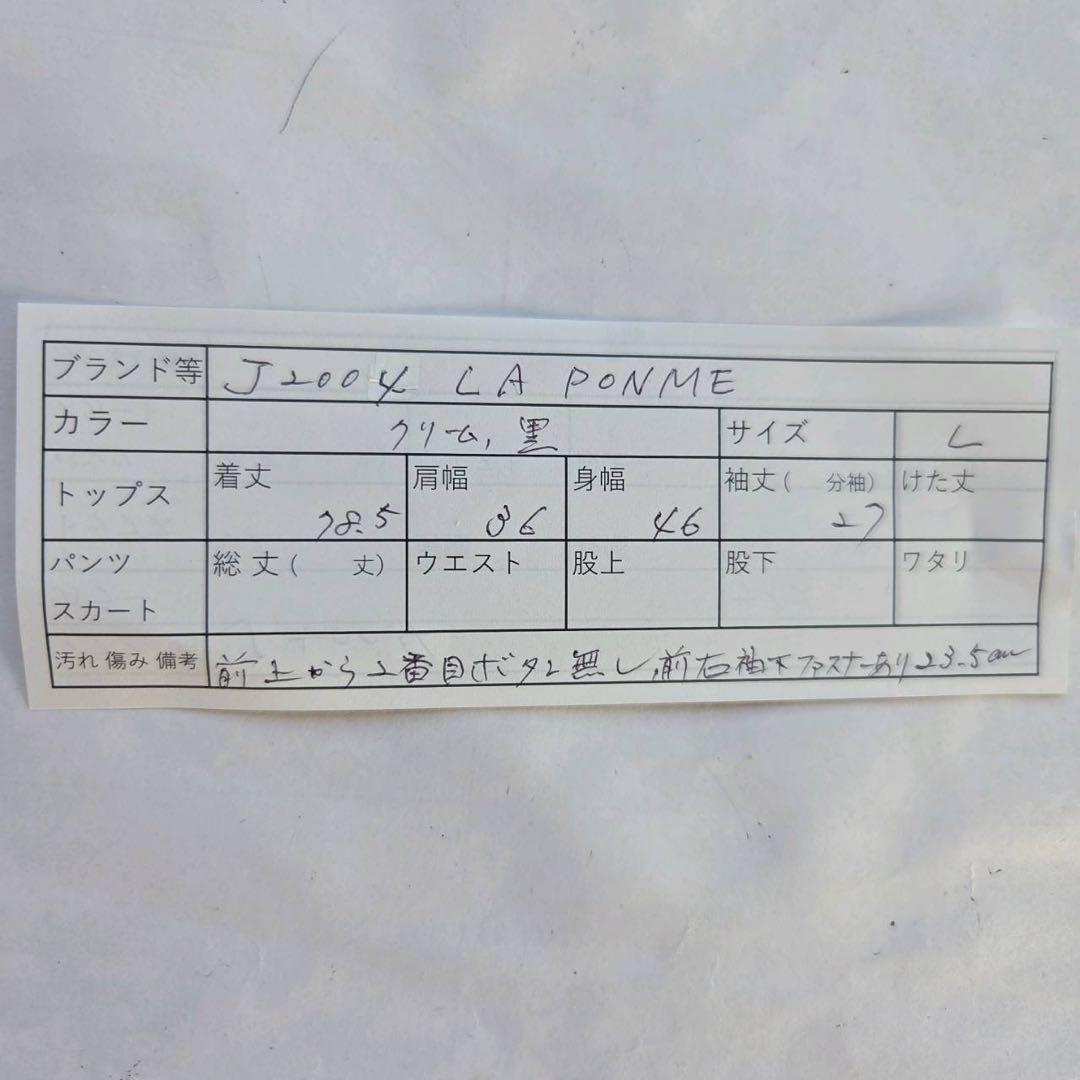 ブランド等 J2004 LA PONME
カラー クリーム, 黒 サイズ L
トップス 着丈 78.5 肩幅 36 身幅 46 袖丈( 分袖) 27 けた丈
パンツ スカート 総丈( 丈) ウエスト 股上 股下 ワタリ
汚れ 傷み 備考 前上から2番目ボタン無し, 前右袖下ファスナーあり23.5cm